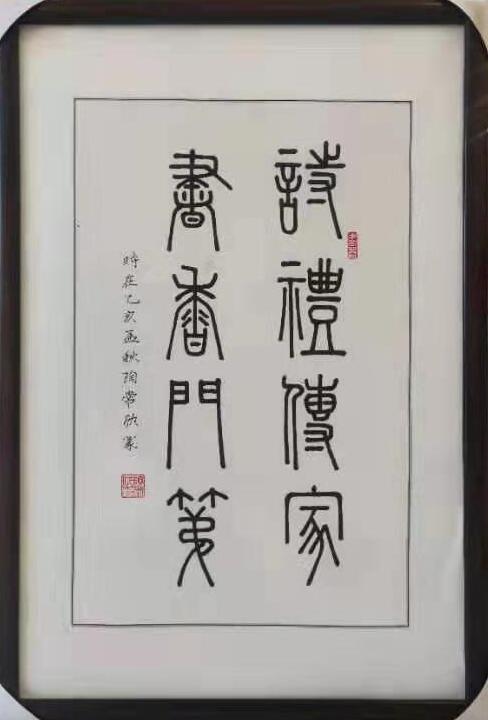 詩禮傳家
書香門第
時在乙亥孟秋陶常欣篆